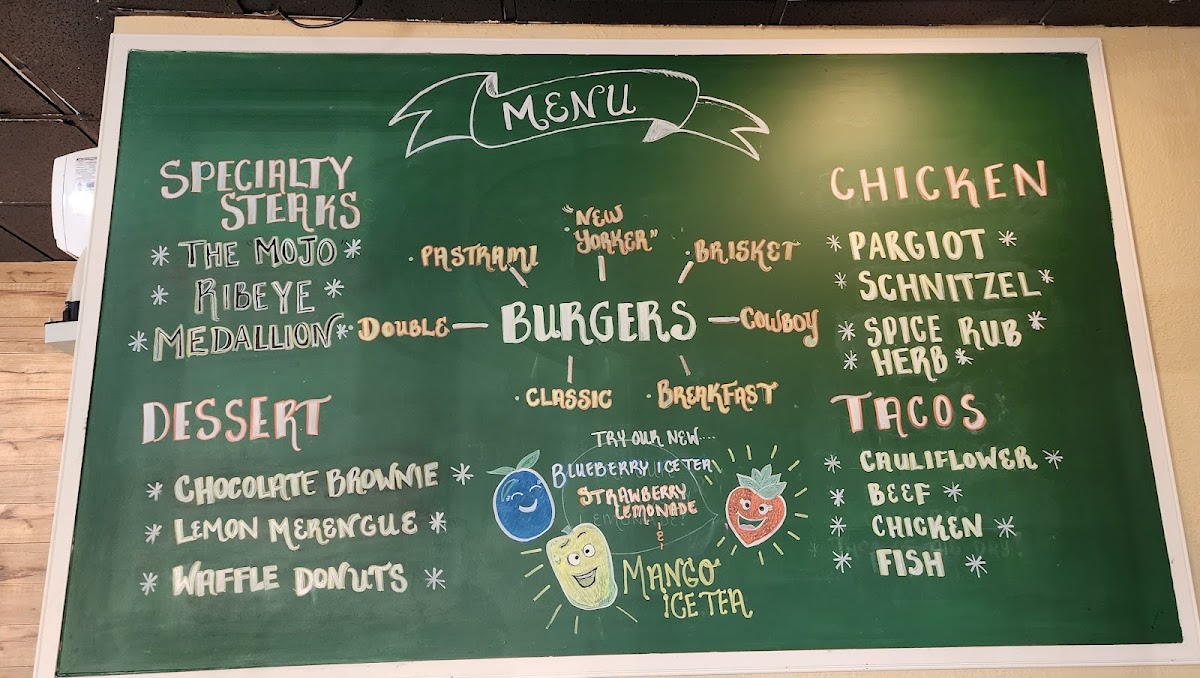 MENU
SPECIALTY
STEAKS
THE "MOJO"
RIBEYE
MEDALLION
DESSERT
CHOCOLATE BROWNIE
LEMON MERENGUE
WAFFLE DONUTS
"NEW
YORKER"
PASTRAMI
BRISKET
DOUBLE
BURGERS
COWBOY
CLASSIC
BREAKFAST
TRY OUR NEW....
BLUEBERRY ICE TEA
STRAWBERRY
LEMONADE
&
MANGO
ICE TEA
CHICKEN
PARGIOT
SCHNITZEL
SPICE RUB
HERB
TACOS
CAULIFLOWER
BEEF
CHICKEN
FISH